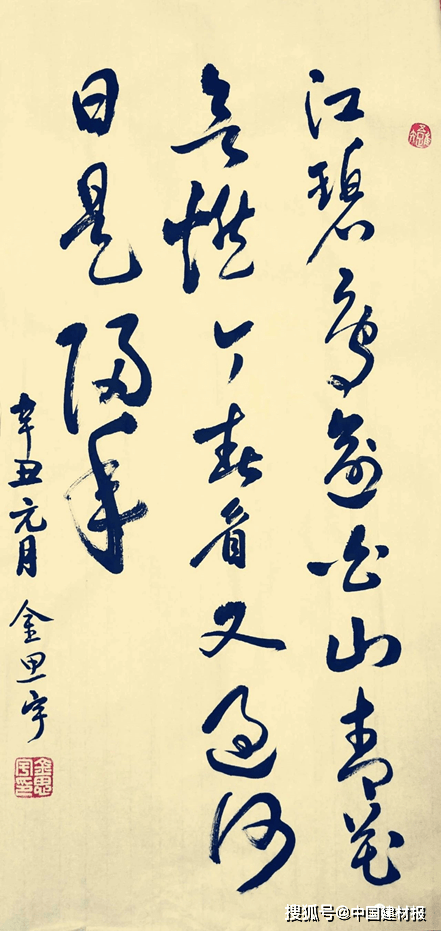 江碧鳥逾白山青花
欲燃今春看又過何
日是歸年
辛丑元月 金思宇
搜狐号@中国建材报